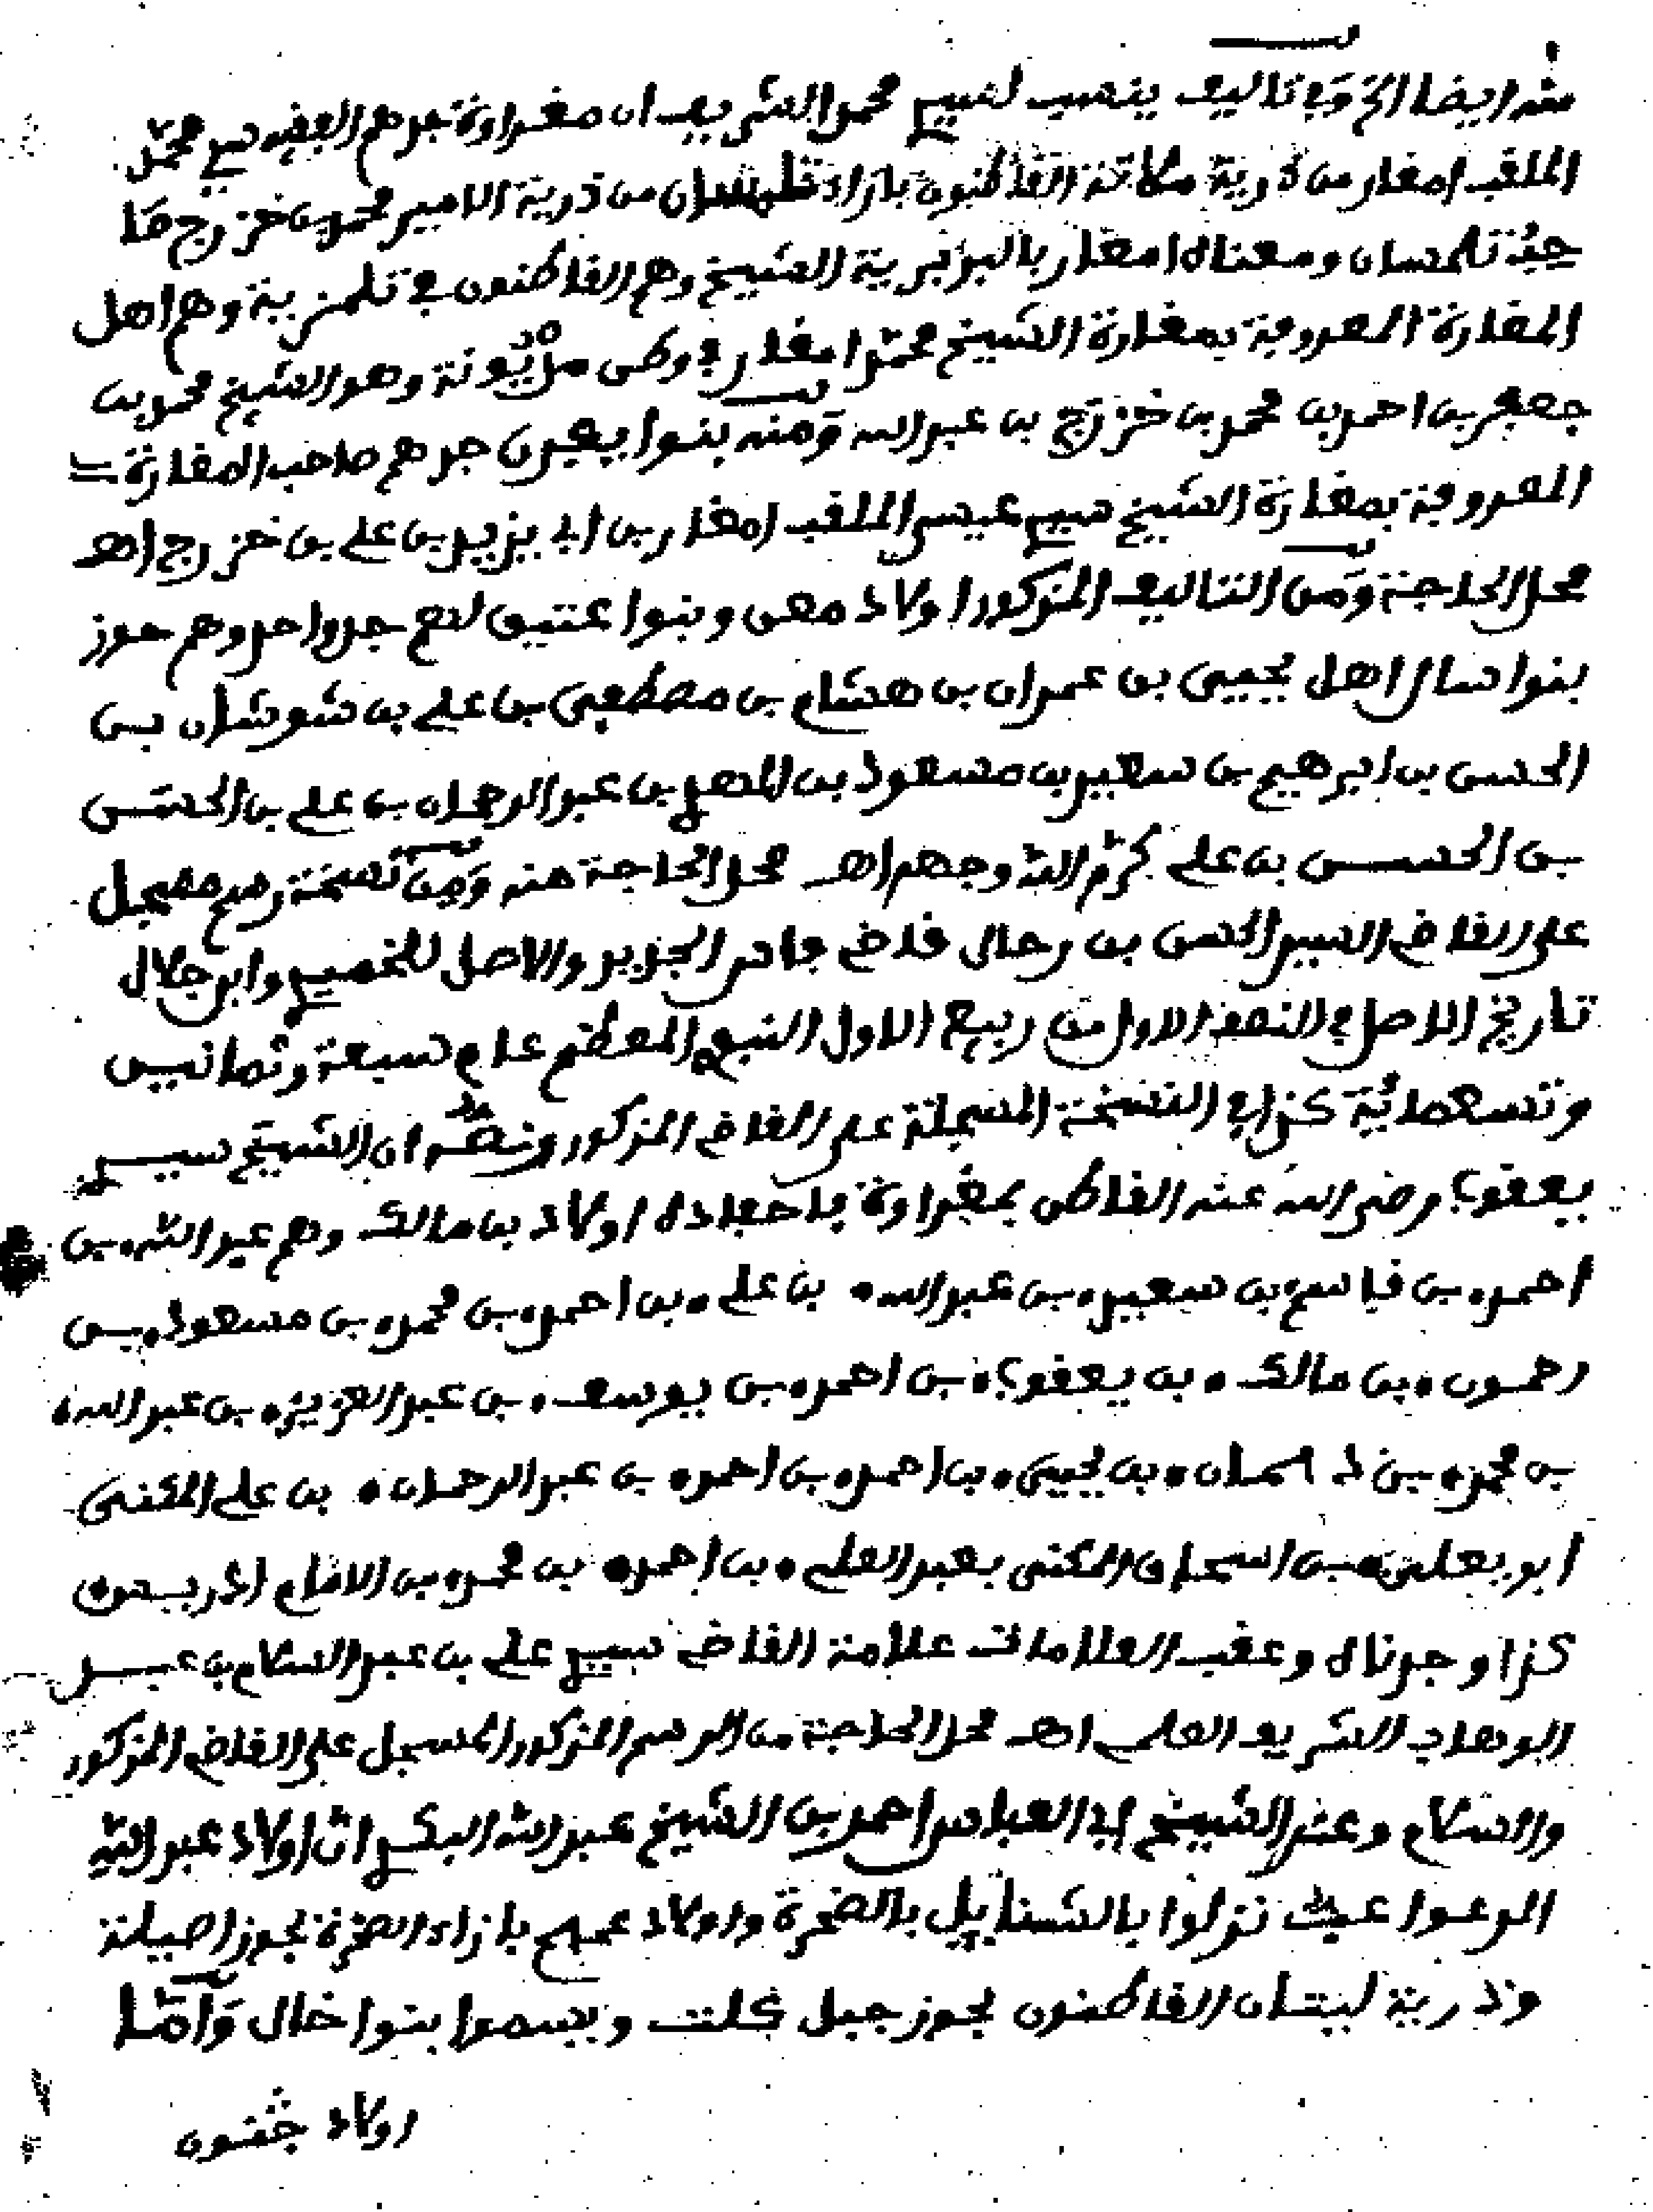 منه ايضا الخ وفي تاليف ينسب لسيدي محمد الشريف ان مغراوة جدهم الفقيه سيدي محمد
الملقب امغار من ذرية ملاتة القاطنون بازاء تلمسان من ذرية الامير محمد بن خزرج
تلمسان ومعناه امغار بالبربرية الشيخ وهم القاطنون في تلمزية وهم اهل
المغارة المعروفة بمغارة الشيخ محمد امغار في وطن وهو الشيخ محمد بن
جعفر بن احمد بن محمد بن خزرج بن عبد الله ومنه بنوا يفرن جدهم صاحب المغارة
المعروفة بمغارة الشيخ سيدي عيسى الملقب امغار بن ابي يزيد بن علي بن خزرج اهـ
محل الحاجة ومن التاليف المذكور اولاد معن وبنوا عتيق لهم جد واحد وهم حوز
بنوا سال اهل يحيى بن عمران بن هشام بن مصطفى بن علي بن شوشان بن
الحسن بن ابرهيم بن سعيد بن مسعود بن المهدي بن عبد الرحمان بن علي بن الحسن
بن الحسن بن علي كرم الله وجههم اهـ محل الحاجة منه ومن نسخة رسم مسجل
على القاضي السيد الحسن بن رحال قاضي فاس الجديد والاصل للخمسي وابن جلال
تاريخ الاصل في النصف الاول من ربيع الاول النبوي المعظم عام سبعة وثمانين
وتسعمائة كذا في النسخة المسجلة على القاضي المذكور ونصه ان الشيخ سيدي
يعقوب رضي الله عنه القاطن بمغراوة باحفاده اولاد بن مالك وهم عبد الله بن
احمد بن قاسم بن سعيد بن عبد الله بن علي بن احمد بن محمد بن مسعود بن
رحمون بن مالك بن يعقوب بن احمد بن يوسف بن عبد العزيز بن عبد الله
بن محمد بن بن يحيى بن احمد بن احمد بن عبد الرحمان بن علي المكنى
ابو يعلى بن اسحاق المكنى بعبد العلي بن احمد بن محمد بن الامام ادريس
كذا وجدناه وعقب العلامات علامة القاضي سيدي علي بن عبد السلام بن عبد
الوهاب الشريف العلمي اهـ محل الحاجة من الرسم المذكور المسجل على القاضي المذكور
والسلام وعند الشيخ ابي العباس احمد بن الشيخ عبد الله البكري ان اولاد عبد الله
المدعوا نزلوا بالشنابيل بالصخرة واولاد عمهم بازاء الصخرة بحوز اصيلة
وذرية ليتان القاطنون بحوز جبل كلت ويسموا بنوا خال واما
اولاد جنون